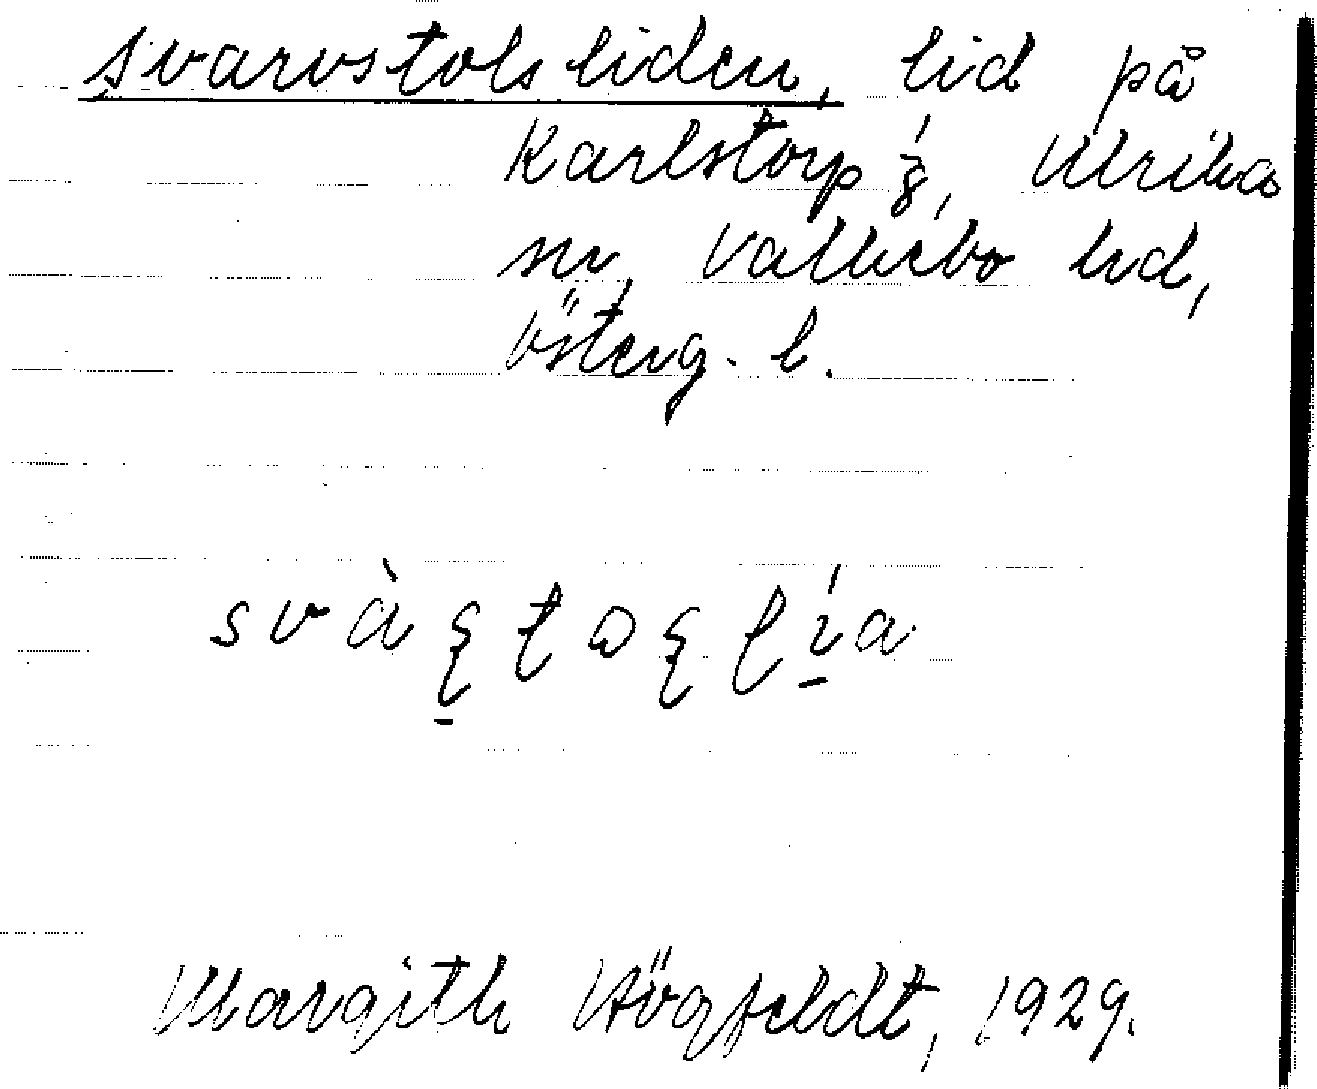 Svarvstolsliden, lid på
Karlstorp 1/8, Ulrika
sn, Valkebo hd,
Österg. l.
Margith Högfeldt, 1929.